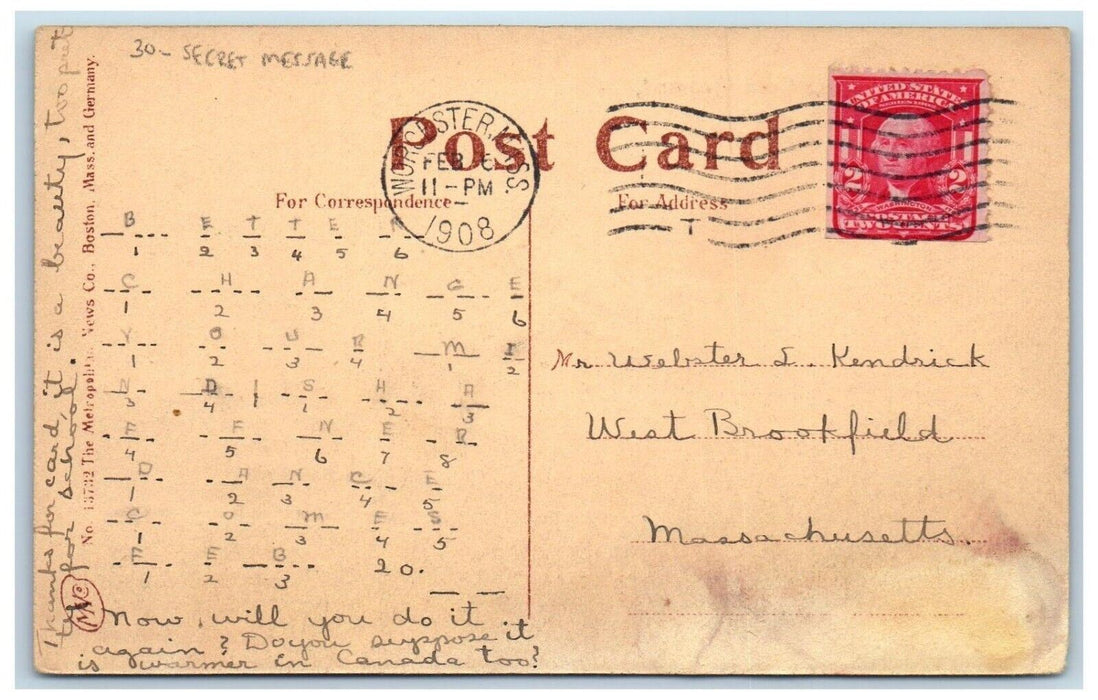 30- SECRET MESSAGE
Post Card
For Correspondence
For Address
WORCESTER, MASS
FEB 6
11-PM
1908
UNITED STATES
OF AMERICA
SERIES 1902
WASHINGTON
2 2
POSTAGE
TWO CENTS
B E T T E R
1 2 3 4 5 6
C H A N G E
1 2 3 4 5 6
Y O U R M E
1 2 3 4 1 2
N D | S H A
3 4 1 2 3
F F N E R
4 5 6 7 8
D A N C E
1 2 3 4 5
C O M E S
1 2 3 4 5
F E B 20.
1 2 3
Now, will you do it
again? Do you suppose it
is warmer in Canada too?
Thanks for card, it is a beauty, too pret
ty for school.
No. 13732 The Metropolitan News Co., Boston, Mass. and Germany.
MNC
Mr Webster L. Kendrick
West Brookfield
Massachusetts.